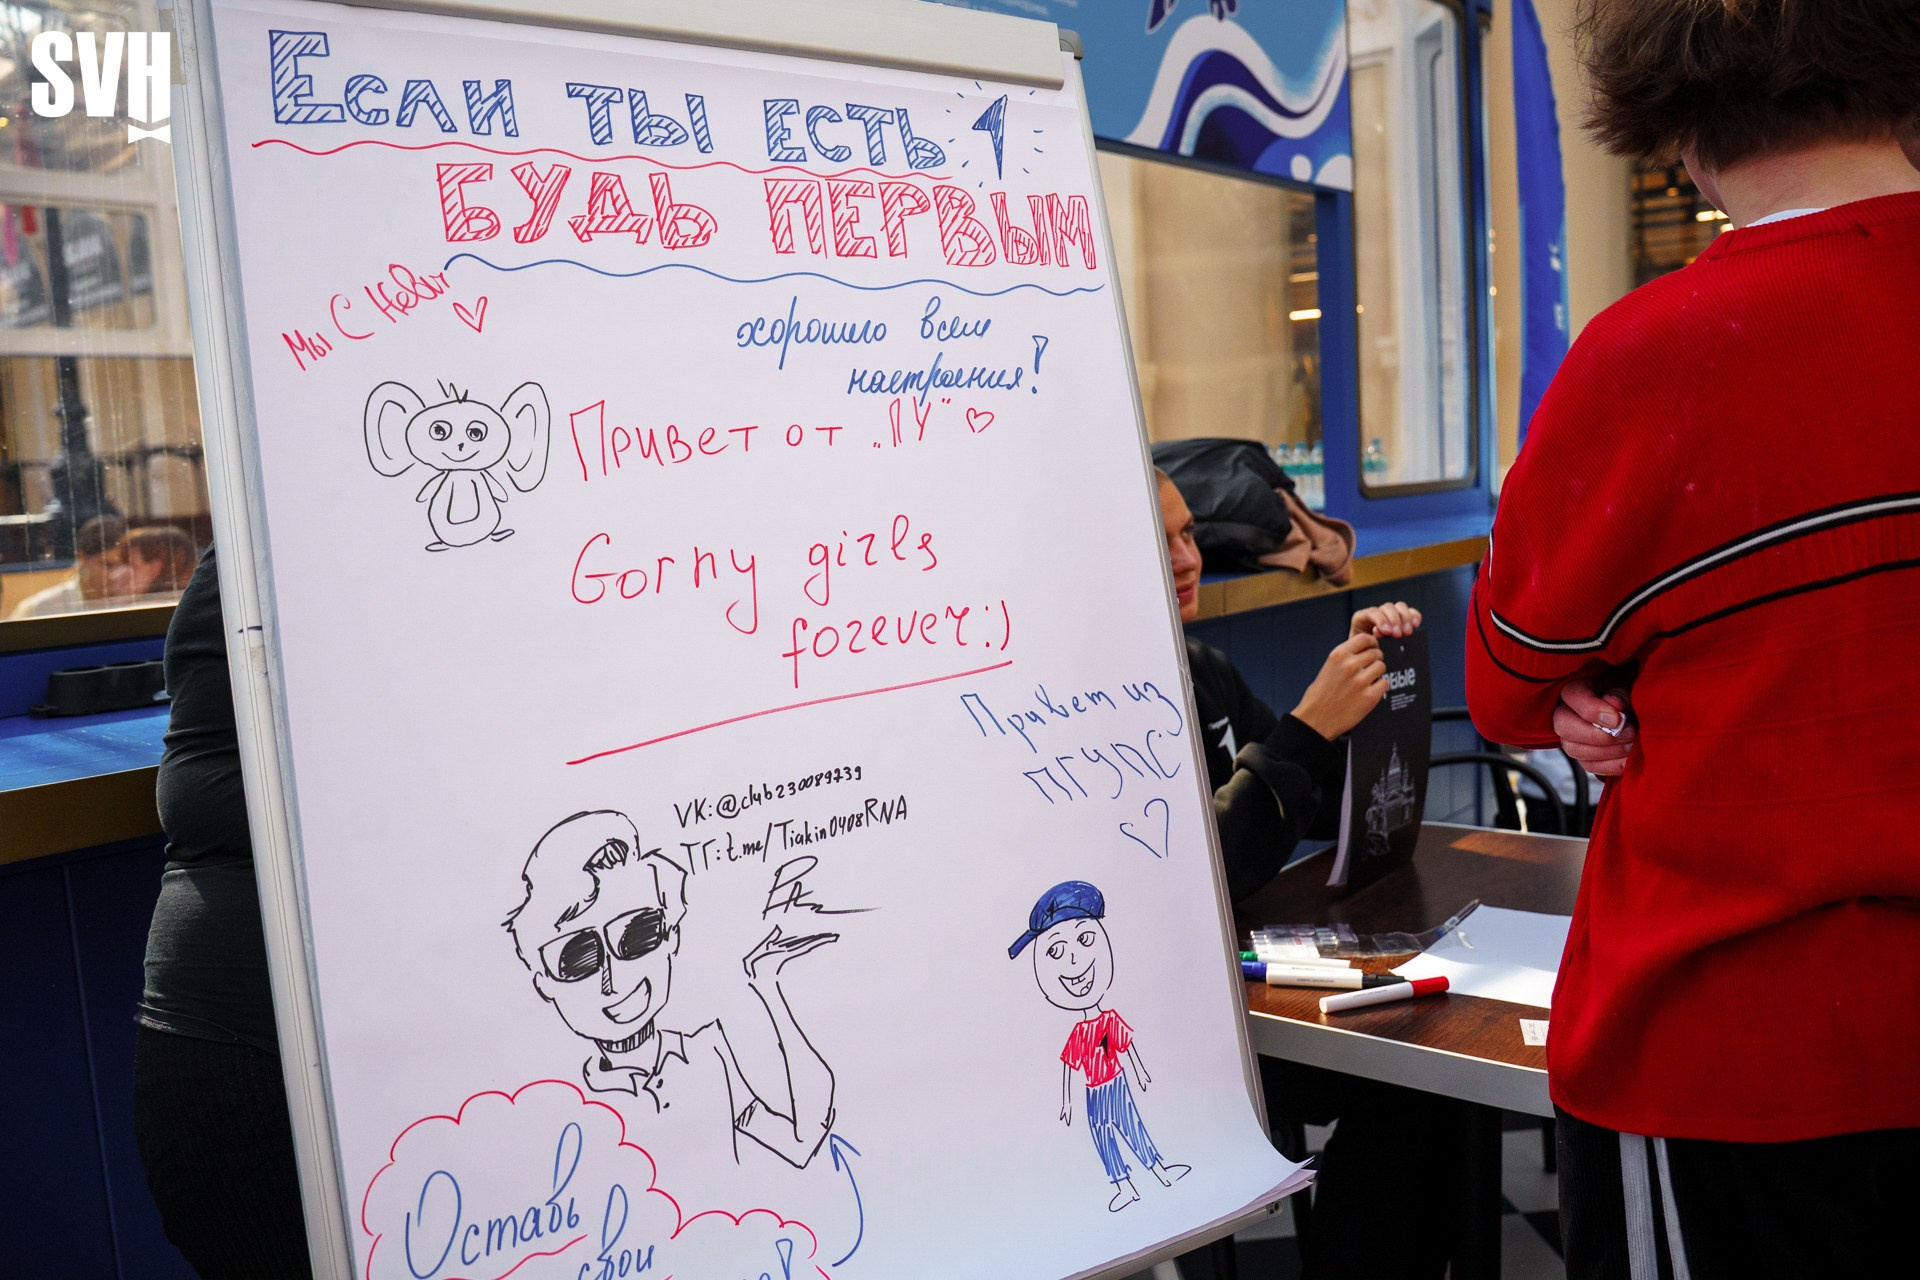 SVH
Если ты есть
БУДЬ ПЕРВЫМ
Мы с Невы
хорошего всем
настроения!
Привет от „ЛУ“
Gorny girls
forever:)
Привет из
ПГУПС
VK:@club230089239
ТГ:t.me/Tiakin0408RNA
Оставь
свой